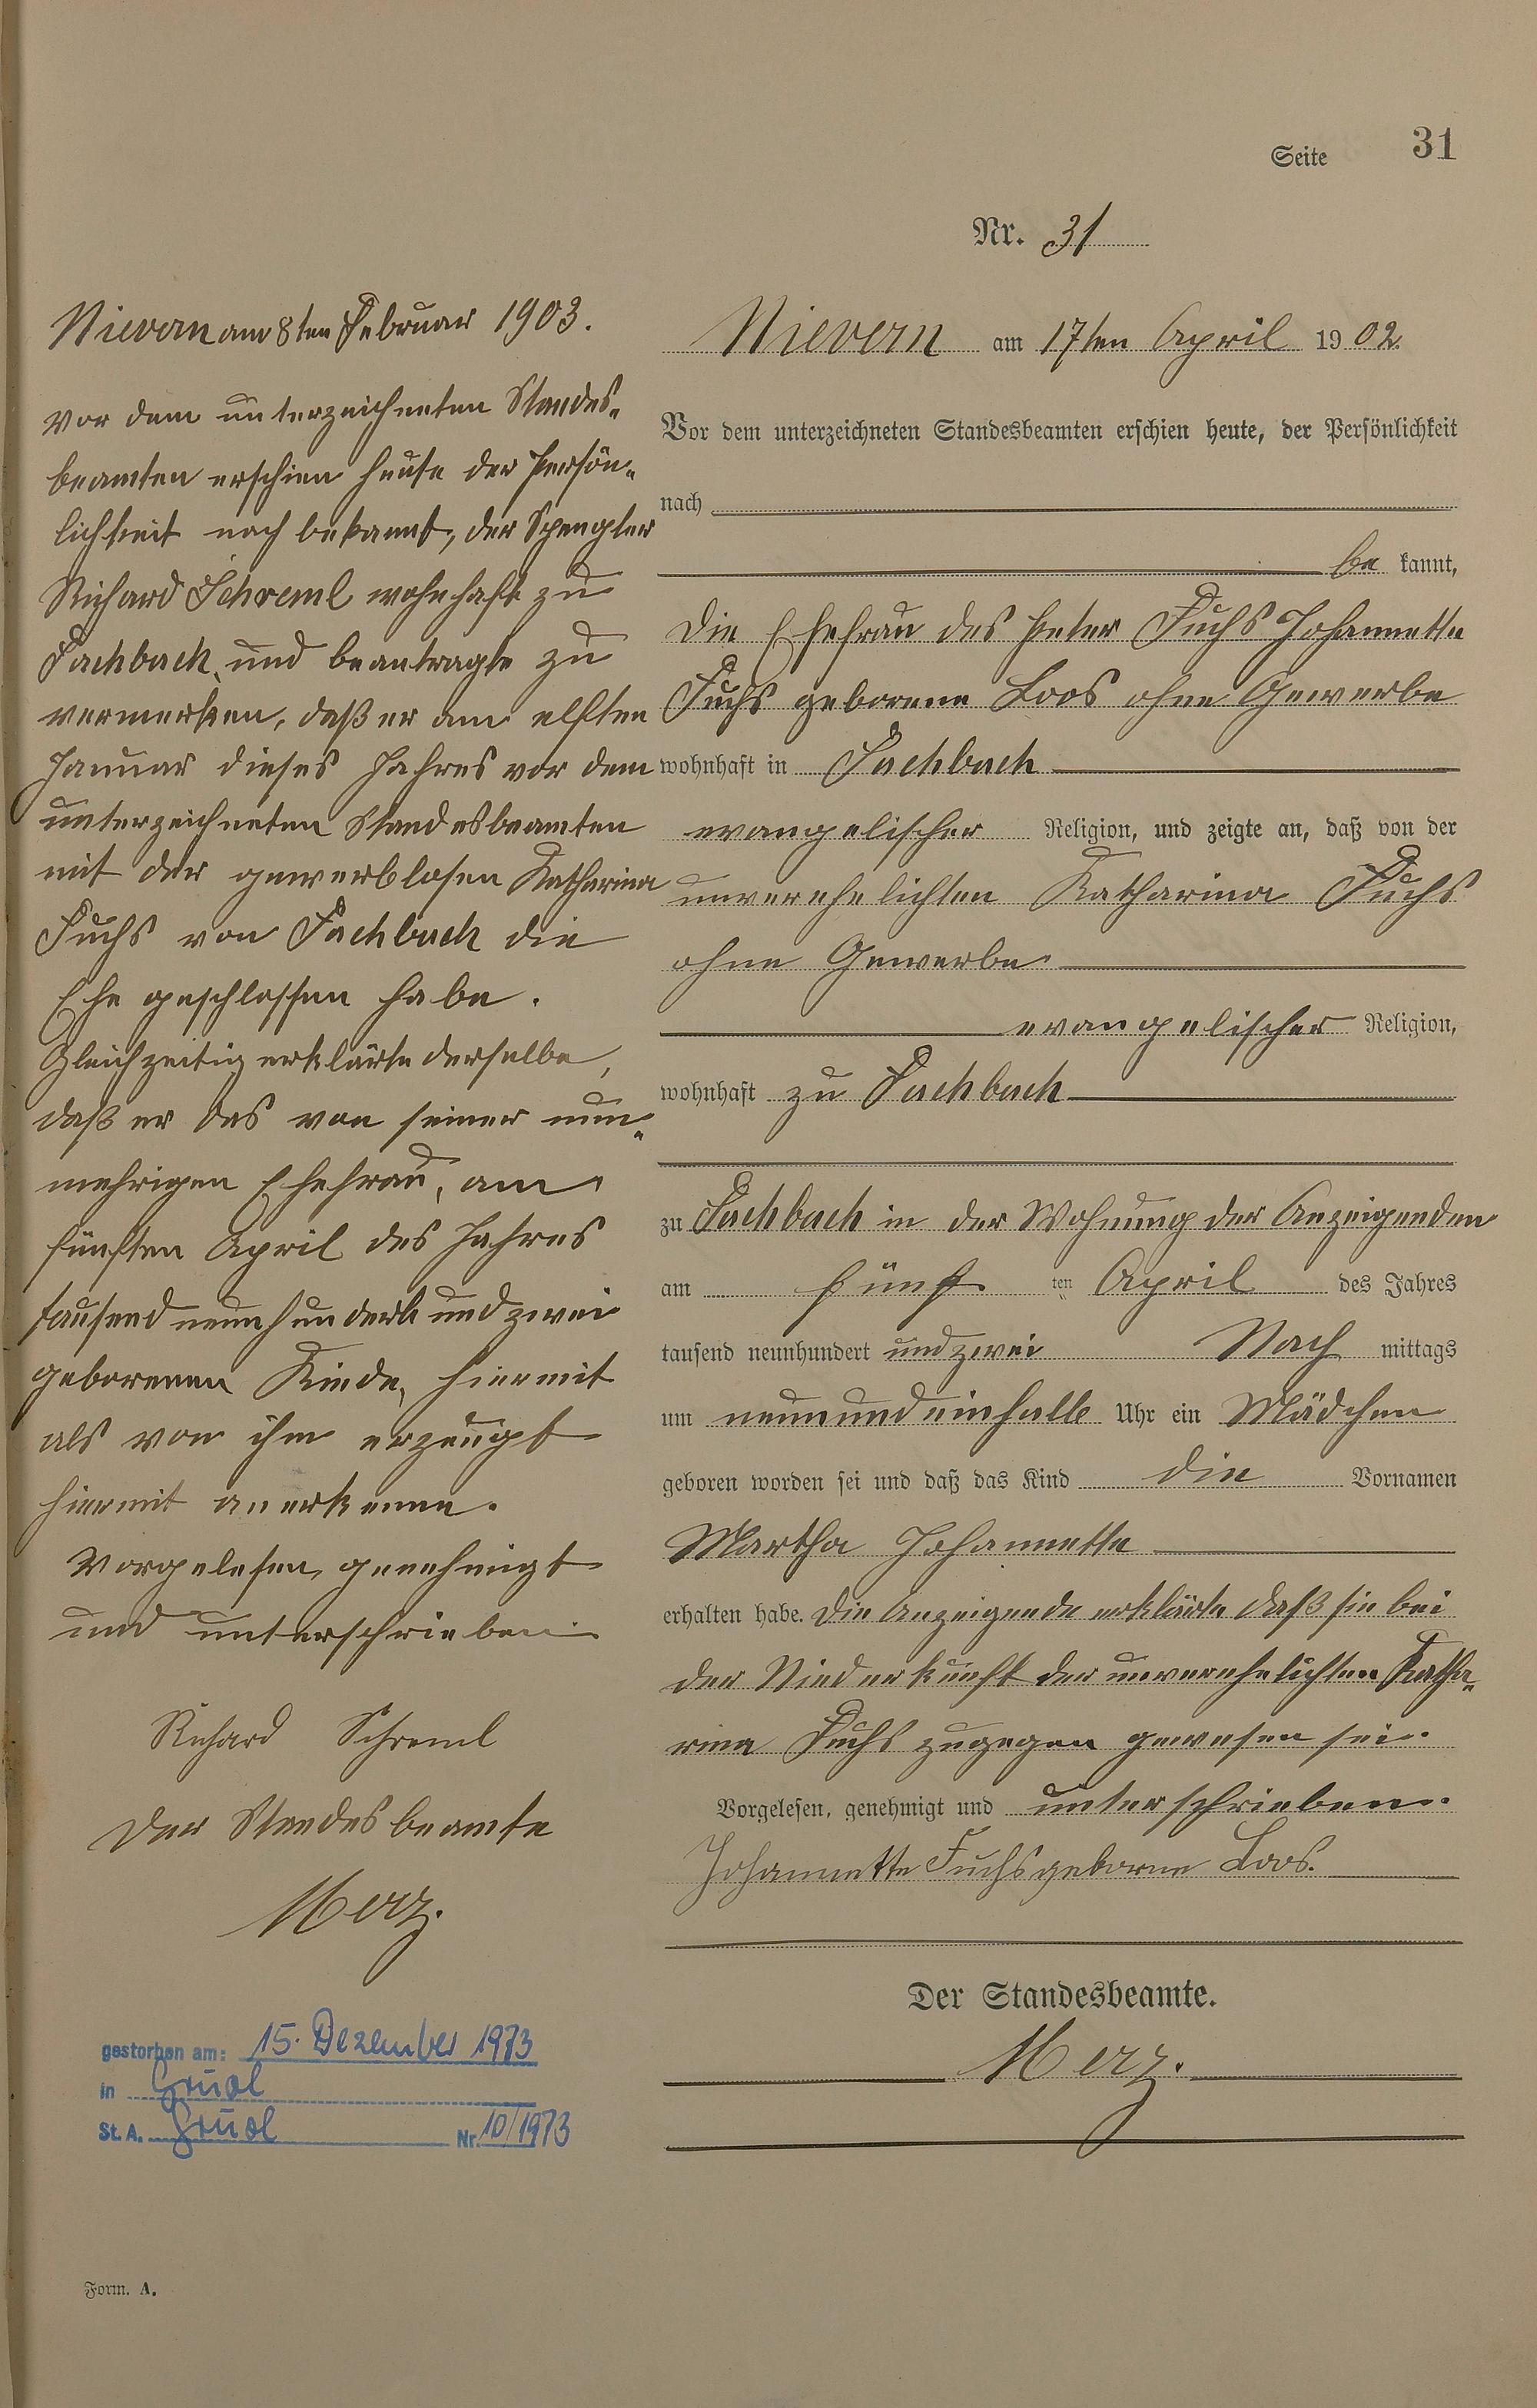 Seite 31
Nr. 31
Nievern am 8ten Februar 1903.
vor dem unterzeichneten Standes-
beamten erschien heute der Persön-
lichkeit nach bekannt, der Spengler
Richard Schreml wohnhaft zu
Fachbach, und beantragte zu
vermerken, daß er am elften
Januar dieses Jahres vor dem
unterzeichneten Standesbeamten
mit der gewerblosen Katharina
Fuchs von Fachbach die
Ehe geschlossen habe.
Gleichzeitig erklärte derselbe,
daß er das von seiner nun-
mehrigen Ehefrau, am
fünften April des Jahres
tausend neunhundert und zwei
geborenen Kinde, hiermit
als von ihm erzeugt
hiermit anerkenne.
Vorgelesen, genehmigt
und unterschrieben
Richard Schreml
Der Standesbeamte
Merz.
gestorben am: 15. Dezember 1973
in
St. A. Nr. 10/1973
Form. A.
Nievern am 17ten April 1902.
Vor dem unterzeichneten Standesbeamten erschien heute, der Persönlichkeit
nach
be kannt,
die Ehefrau des Peter Fuchs Johannette
Fuchs geborene Loos ohne Gewerbe
wohnhaft in Fachbach
evangelischer Religion, und zeigte an, daß von der
unverehelichten Katharina Fuchs
ohne Gewerbe
evangelischer Religion,
wohnhaft zu Fachbach
zu Fachbach in der Wohnung der Anzeigenden
am fünf ten April des Jahres
tausend neunhundert und zwei Nach mittags
um neun und einhalb Uhr ein Mädchen
geboren worden sei und daß das Kind die Vornamen
Martha Johannette
erhalten habe. Die Anzeigende erklärte daß sie bei
der Niederkunft der unverehelichten Katha-
rina Fuchs zugegen gewesen sei.
Vorgelesen, genehmigt und unterschrieben.
Johannette Fuchs geborne Loos.
Der Standesbeamte.
Merz.